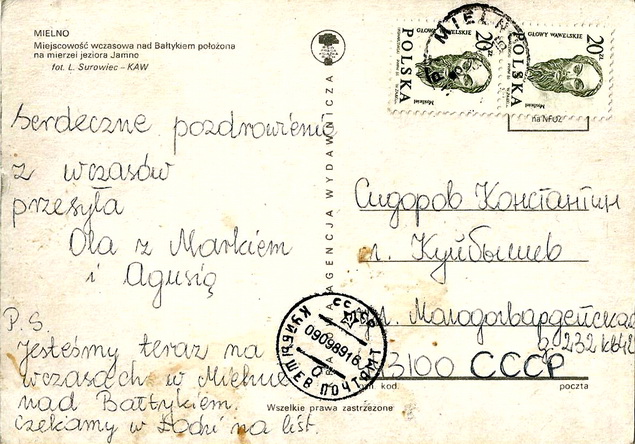 MIELNO
Miejscowość wczasowa nad Bałtykiem położona
na mierzei jeziora Jamno
fot. L. Surowiec – KAW
Serdeczne pozdrowienia
z wczasów
przesyła
Ola z Markiem
i Agusią
P.S.
Jesteśmy teraz na
wczasach w Mielnie
nad Bałtykiem.
czekamy w Łodzi na list.
AGENCJA WYDAWNICZA
Wszelkie prawa zastrzeżone
GŁOWY WAWELSKIE
20 zł
POLSKA
GŁOWY WAWELSKIE
20 zł
POLSKA
MIELNO
Сидоров Константин
г. Куйбышев
Молодогвардейская
СССР
СССР
КУЙБЫШЕВ ПОЧТАМТ
09098916
kod.
poczta